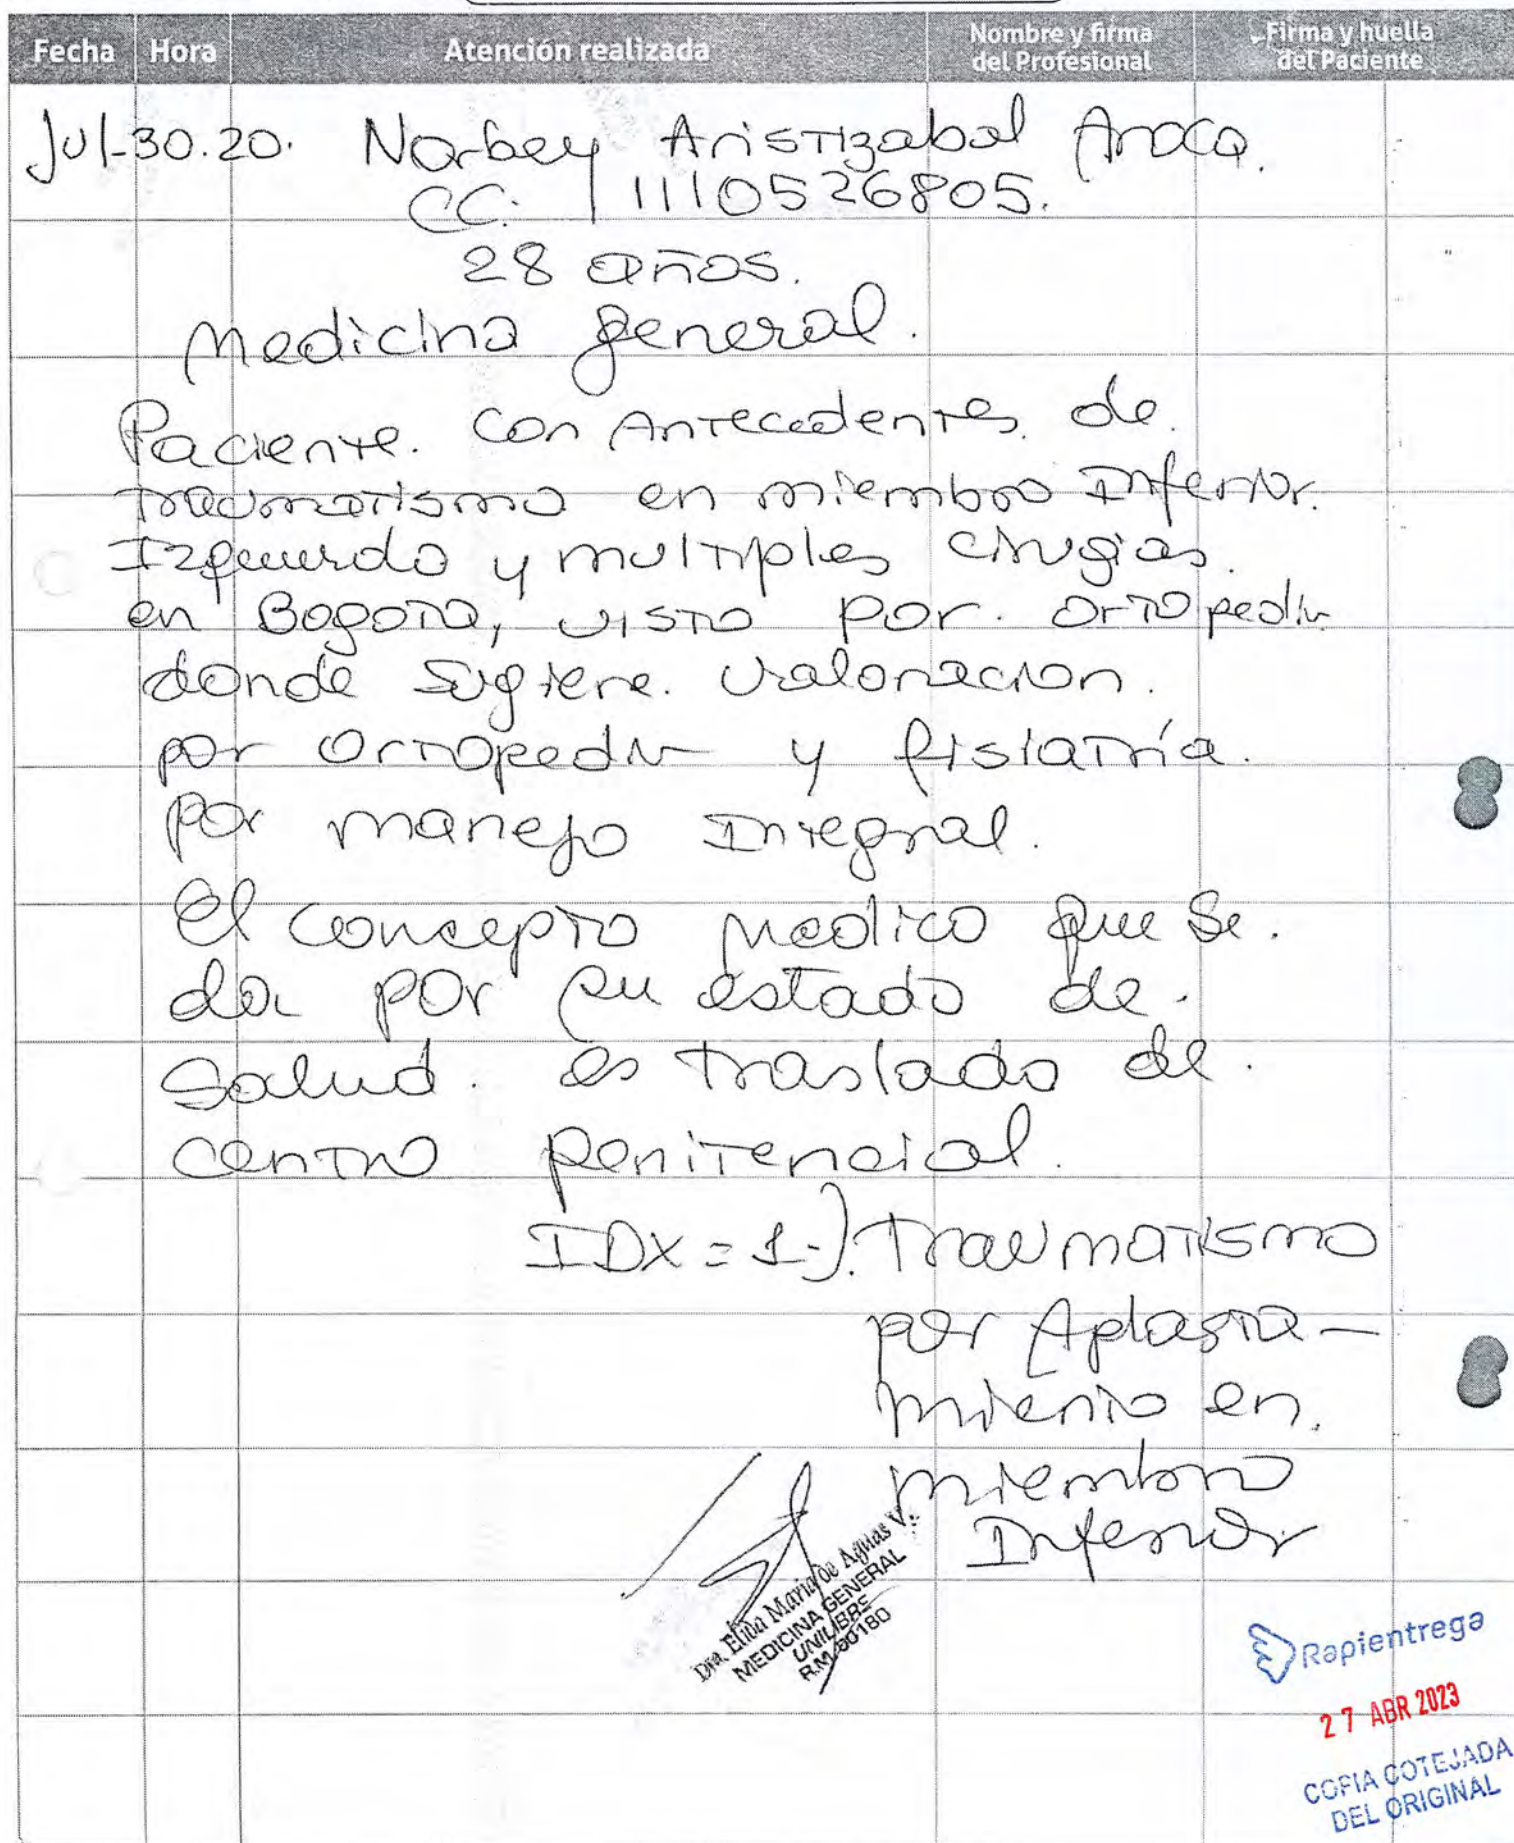 Fecha Hora Atención realizada Nombre y firma del Profesional Firma y huella del Paciente
Jul-30.20. Norbey Aristizabal Aroca.
CC. 1110526805.
28 años.
Medicina general.
Paciente. con Antecedentes. de.
traumatismo en miembro Inferior.
Izquierdo y multiples cirugias.
en Bogota, visto por. ortopedia
donde sugiere. valoracion.
por Ortopedia y fisiatría.
por manejo Integral.
El concepto medico que se.
da por su estado de.
Salud. es traslado de.
centro penitencial.
IDX = 1-). Traumatismo
por Aplasta-
miento en.
miembro
Inferior
Dra. Elida Maria de Aguas V.
MEDICINA GENERAL
UNILIBRE
R.M. 80180
Rapientrega
27 ABR 2023
COPIA COTEJADA
DEL ORIGINAL